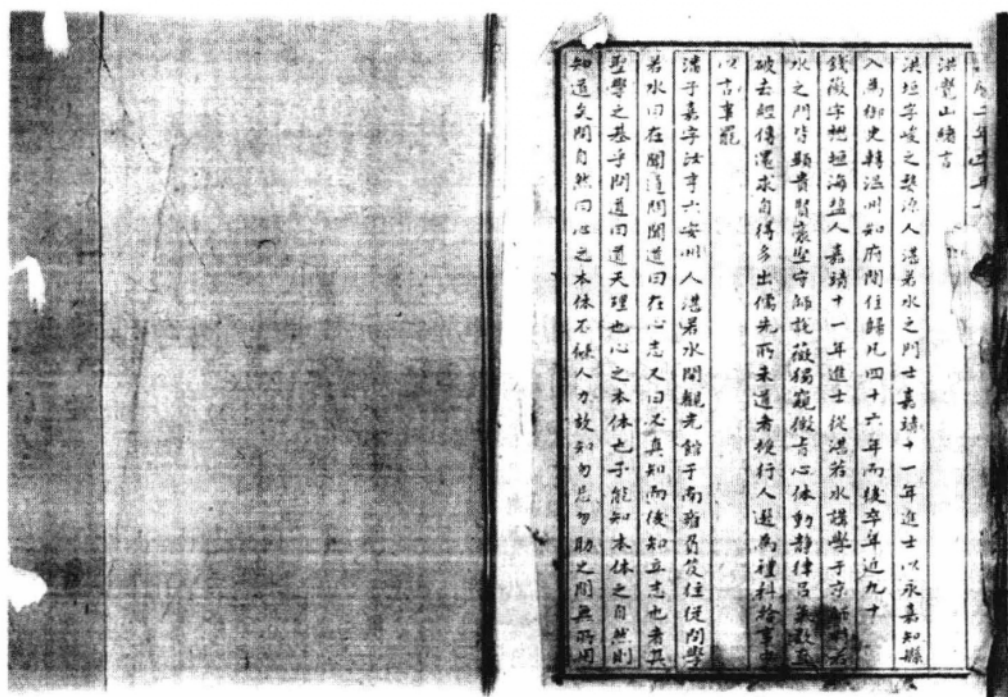 二年
洪覺山緒言
洪垣字峻之婺源人湛若水之門士嘉靖十一年進士以永嘉知縣
入為御史轉温州知府閒住歸凡四十六年而後卒年近九十
錢薇字懋垣海鹽人嘉靖十一年進士從湛若水講學于京師時若
水之門皆顯貴賢裒堅守師說薇獨窺微旨心体動静律吕氣數直
破去經傳還求自得多出儒先所未道者授行人選為禮科給事中
以言事罷
潘子嘉字汝亨六安州人湛若水開觀光館于南雍負笈往從問學
若水曰在聞道問聞道曰在心志又曰必真知而後知立志也者其
聖學之基乎問道曰道天理也心之本体也子能知本体之自然則
知道矣問自然曰心之本体不假人力故知勿忘勿助之間無所用